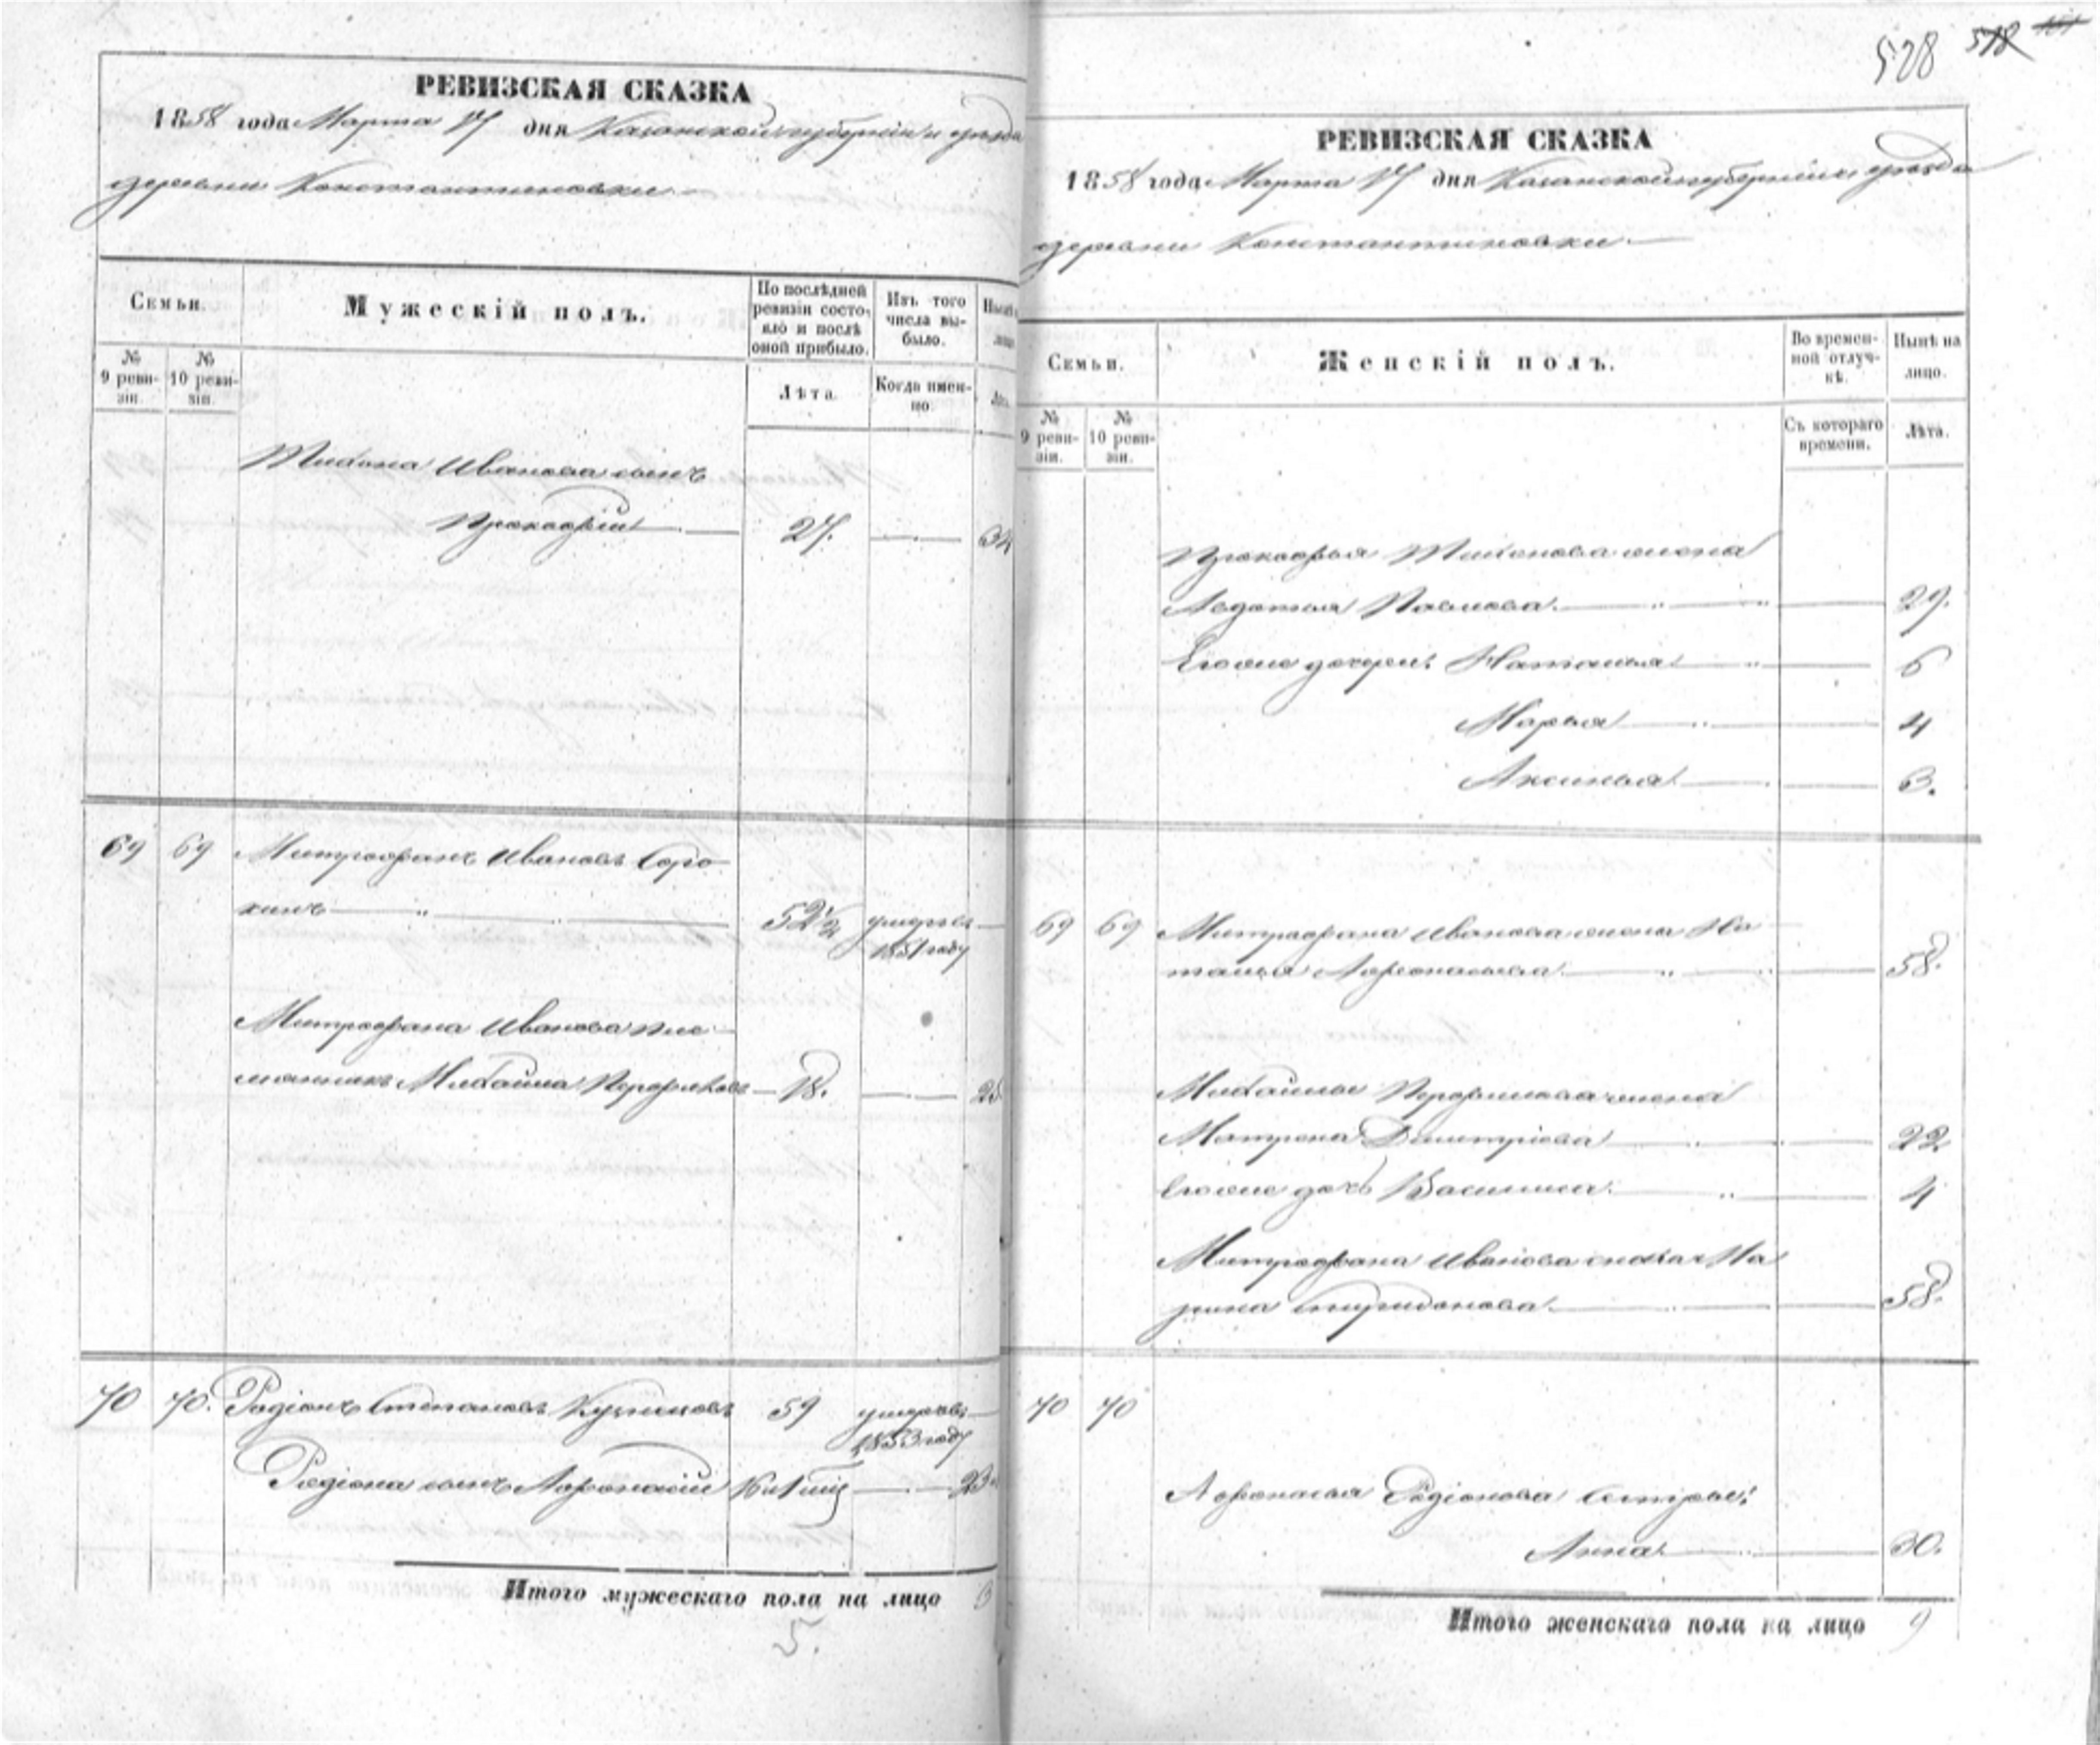 РЕВИЗСКАЯ СКАЗКА
1858 года Марта 17 дня Казанской губерніи и уѣзда
деревни Константиновки
Семьи.
Мужескій полъ.
По послѣдней ревизіи состояло и послѣ оной прибыло.
Изъ того числа выбыло.
№ 9 ревизіи.
№ 10 ревизіи.
Лѣта.
Когда именно.
Тихона Иванова сынъ
Прокофій 27. 34
69 69 Митрофанъ Ивановъ Соро-
кинъ 52½ умеръ
1851 году
Митрофана Иванова пле-
мянникъ Михайла Перфиловъ 18. 25
70 70. Родіонъ Степановъ Кузнецовъ 59 умеръ
1853 году
Родіона сынъ Афонасій 23
Итого мужескаго пола на лицо 3
5.
528 518
РЕВИЗСКАЯ СКАЗКА
1858 года Марта 17 дня Казанской губерніи и уѣзда
деревни Константиновки
Семьи.
Женскій полъ.
Во временной отлучкѣ.
Нынѣ на лицо.
№ 9 ревизіи.
№ 10 ревизіи.
Съ котораго времени.
Лѣта.
Прокофья Тихонова жена
Авдотья Павлова 29.
Егоже дочери: Наталья 6
Марья 4
Аксинья 3.
69 69 Митрофана Иванова жена На-
талья Афонасьева 58.
Михайлы Перфилова жена
Матрена Дмитріева 22.
Егоже дочь Василиса 4
Митрофана Иванова сноха Ма-
рина Спиридонова 58.
70 70
Афонасья Родіонова сестры:
Анна 30.
Итого женскаго пола на лицо 9